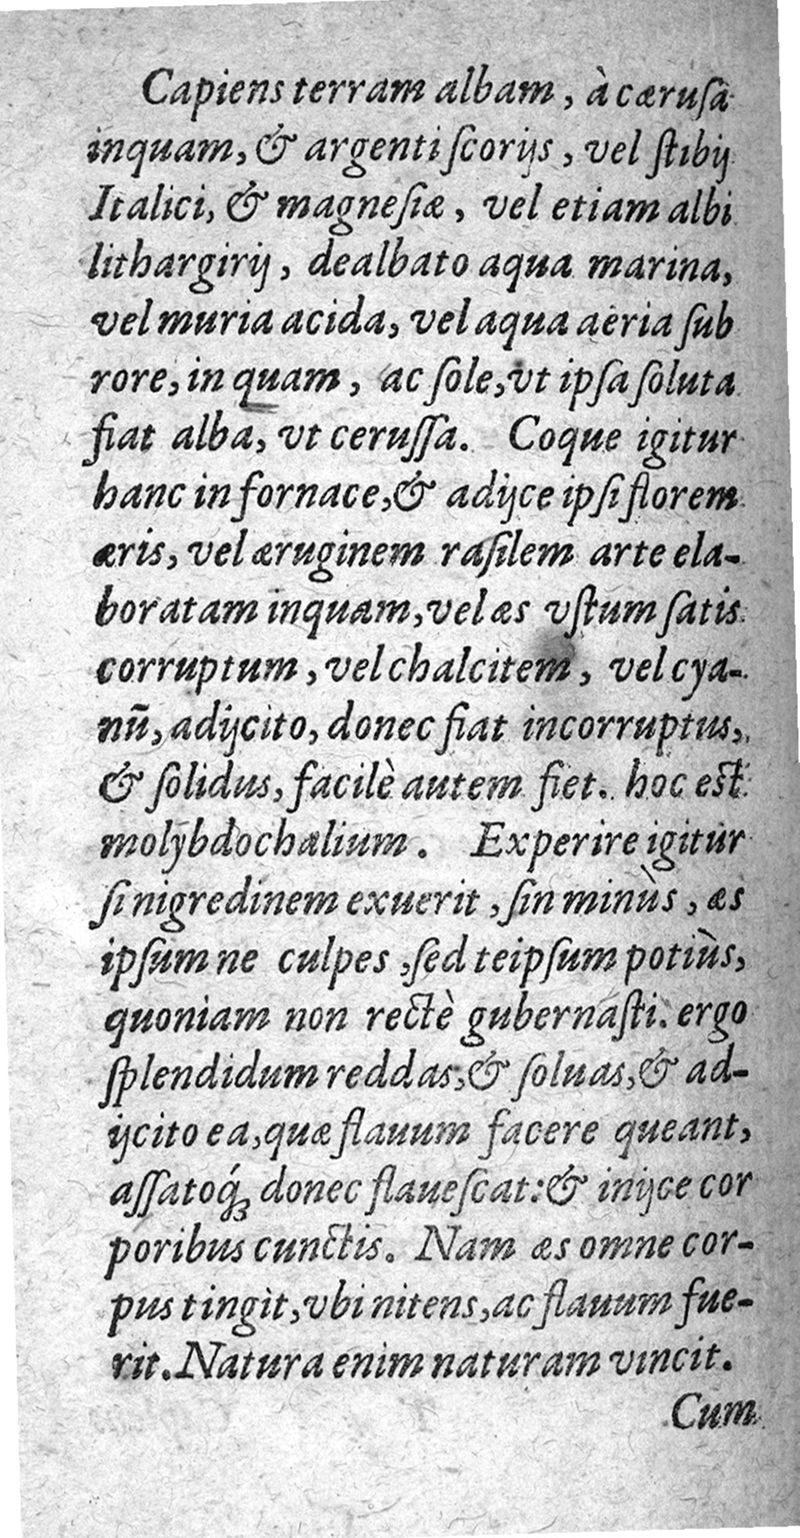 Capiens terram albam, à cæruſâ
inquam, & argenti ſcorijs, vel ſtibij
Italici, & magneſiæ, vel etiam albi
lithargirij, dealbato aqua marina,
vel muria acida, vel aqua aëria ſub
rore, inquam, ac ſole, vt ipſa ſoluta
fiat alba, vt ceruſſa. Coque igitur
hanc in fornace, & adijce ipſi florem
æris, vel æruginem raſilem arte ela-
boratam inquam, vel æs vſtum ſatis
corruptum, vel chalcitem, vel cya-
nũ, adijcito, donec fiat incorruptus,
& ſolidus, facilè autem fiet. hoc eſt
molybdochalium. Experire igitur
ſi nigredinem exuerit, ſin minùs, æs
ipſum ne culpes, ſed teipſum potiùs,
quoniam non rectè gubernaſti. ergo
ſplendidum reddas, & ſoluas, & ad-
ijcito ea, quæ flauum facere queant,
aſſatoq́ꝫ donec flaueſcat: & inijce cor
poribus cunctis. Nam æs omne cor-
pus tingit, vbi nitens, ac flauum fue-
rit. Natura enim naturam vincit.
Cum